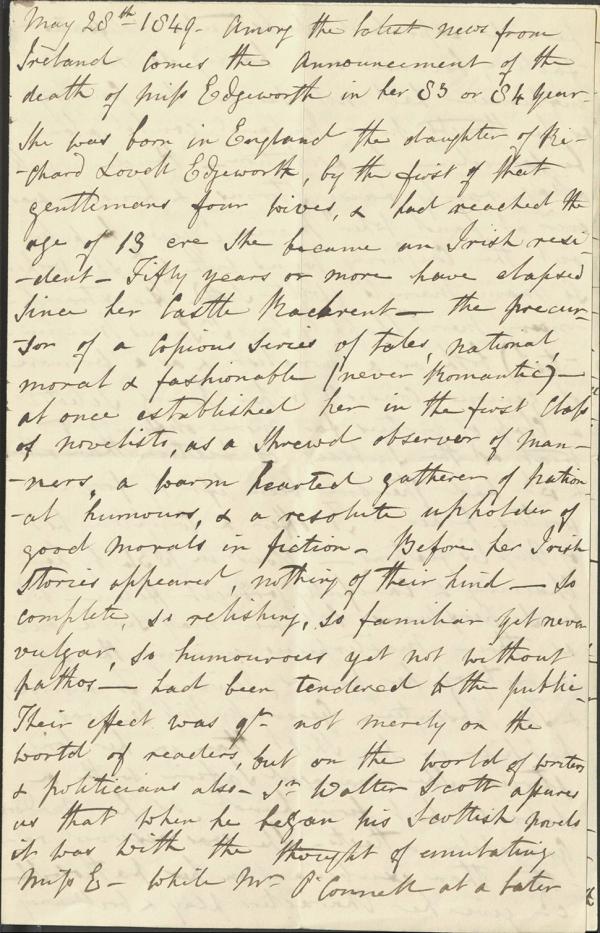 May 28th 1849. Among the latest news from
Ireland comes the announcement of the
death of Miss Edgeworth in her 83 or 84 year.
She was born in England the daughter of Ri-
-chard Lovell Edgeworth, by the first of that
gentlemans four wives, & had reached the
age of 13 ere She became an Irish resi-
-dent - Fifty years or more have elapsed
Since her Castle Rackrent - the precur-
-sor of a copious Series of tales, national,
moral & fashionable (never Romantic) -
at once established her in the first Class
of novelists, as a Shrewd observer of man-
-ners, a warm hearted gatherer of nation-
-al humours, & a resolute upholder of
good morals in fiction - Before her Irish
Stories appeared, nothing of their kind - So
complete, so relishing, so familiar yet never
vulgar, so humourous yet not without
pathos - had been tendered to the public -
Their effect was gt. not merely on the
world of readers, but on the world of writers
& politicians also - Sr. Walter Scott assures
us that when he began his Scottish novels
it was with the thought of emulating
Miss E - While Mr. O'Connell at a later